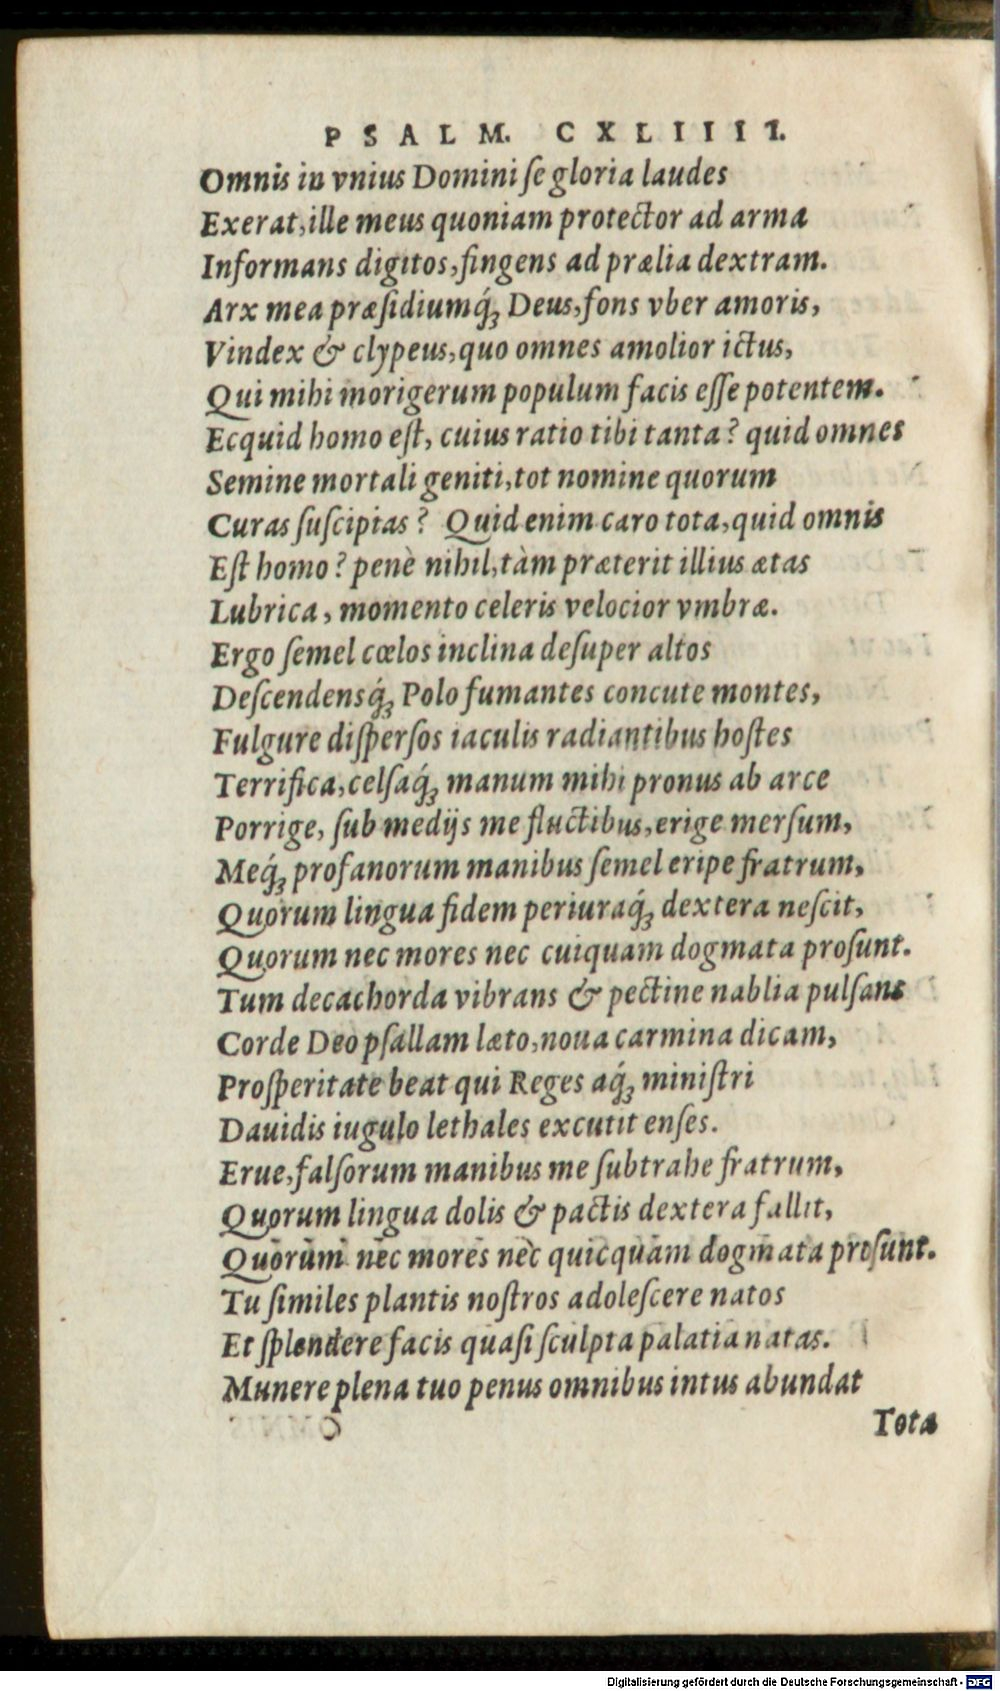 PSALM. CXLIIII.
Omnis in vnius Domini ſe gloria laudes
Exerat, ille meus quoniam protector ad arma
Informans digitos, fingens ad prælia dextram.
Arx mea præſidiumq́ꝫ Deus, fons vber amoris,
Vindex & clypeus, quo omnes amolior ictus,
Qui mihi morigerum populum facis eſſe potentem.
Ecquid homo eſt, cuius ratio tibi tanta? quid omnes
Semine mortali geniti, tot nomine quorum
Curas ſuſcipias? Quid enim caro tota, quid omnis
Eſt homo? penè nihil, tàm præterit illius ætas
Lubrica, momento celeris velocior vmbræ.
Ergo ſemel cœlos inclina deſuper altos
Deſcendensq́ꝫ Polo fumantes concute montes,
Fulgure diſperſos iaculis radiantibus hoſtes
Terrifica, celſaq́ꝫ manum mihi pronus ab arce
Porrige, ſub medijs me fluctibus, erige merſum,
Meq́ꝫ profanorum manibus ſemel eripe fratrum,
Quorum lingua fidem periuraq́ꝫ dextera neſcit,
Quorum nec mores nec cuiquam dogmata proſunt.
Tum decachorda vibrans & pectine nablia pulſans
Corde Deo pſallam læto, noua carmina dicam,
Proſperitate beat qui Reges aq́ꝫ miniſtri
Dauidis iugulo lethales excutit enſes.
Erue, falſorum manibus me ſubtrahe fratrum,
Quorum lingua dolis & pactis dextera fallit,
Quorum nec mores nec quicquam dogmata proſunt.
Tu ſimiles plantis noſtros adoleſcere natos
Et ſplendere facis quaſi ſculpta palatia natas.
Munere plena tuo penus omnibus intus abundat
Tota
Digitalisierung gefördert durch die Deutsche Forschungsgemeinschaft - DFG